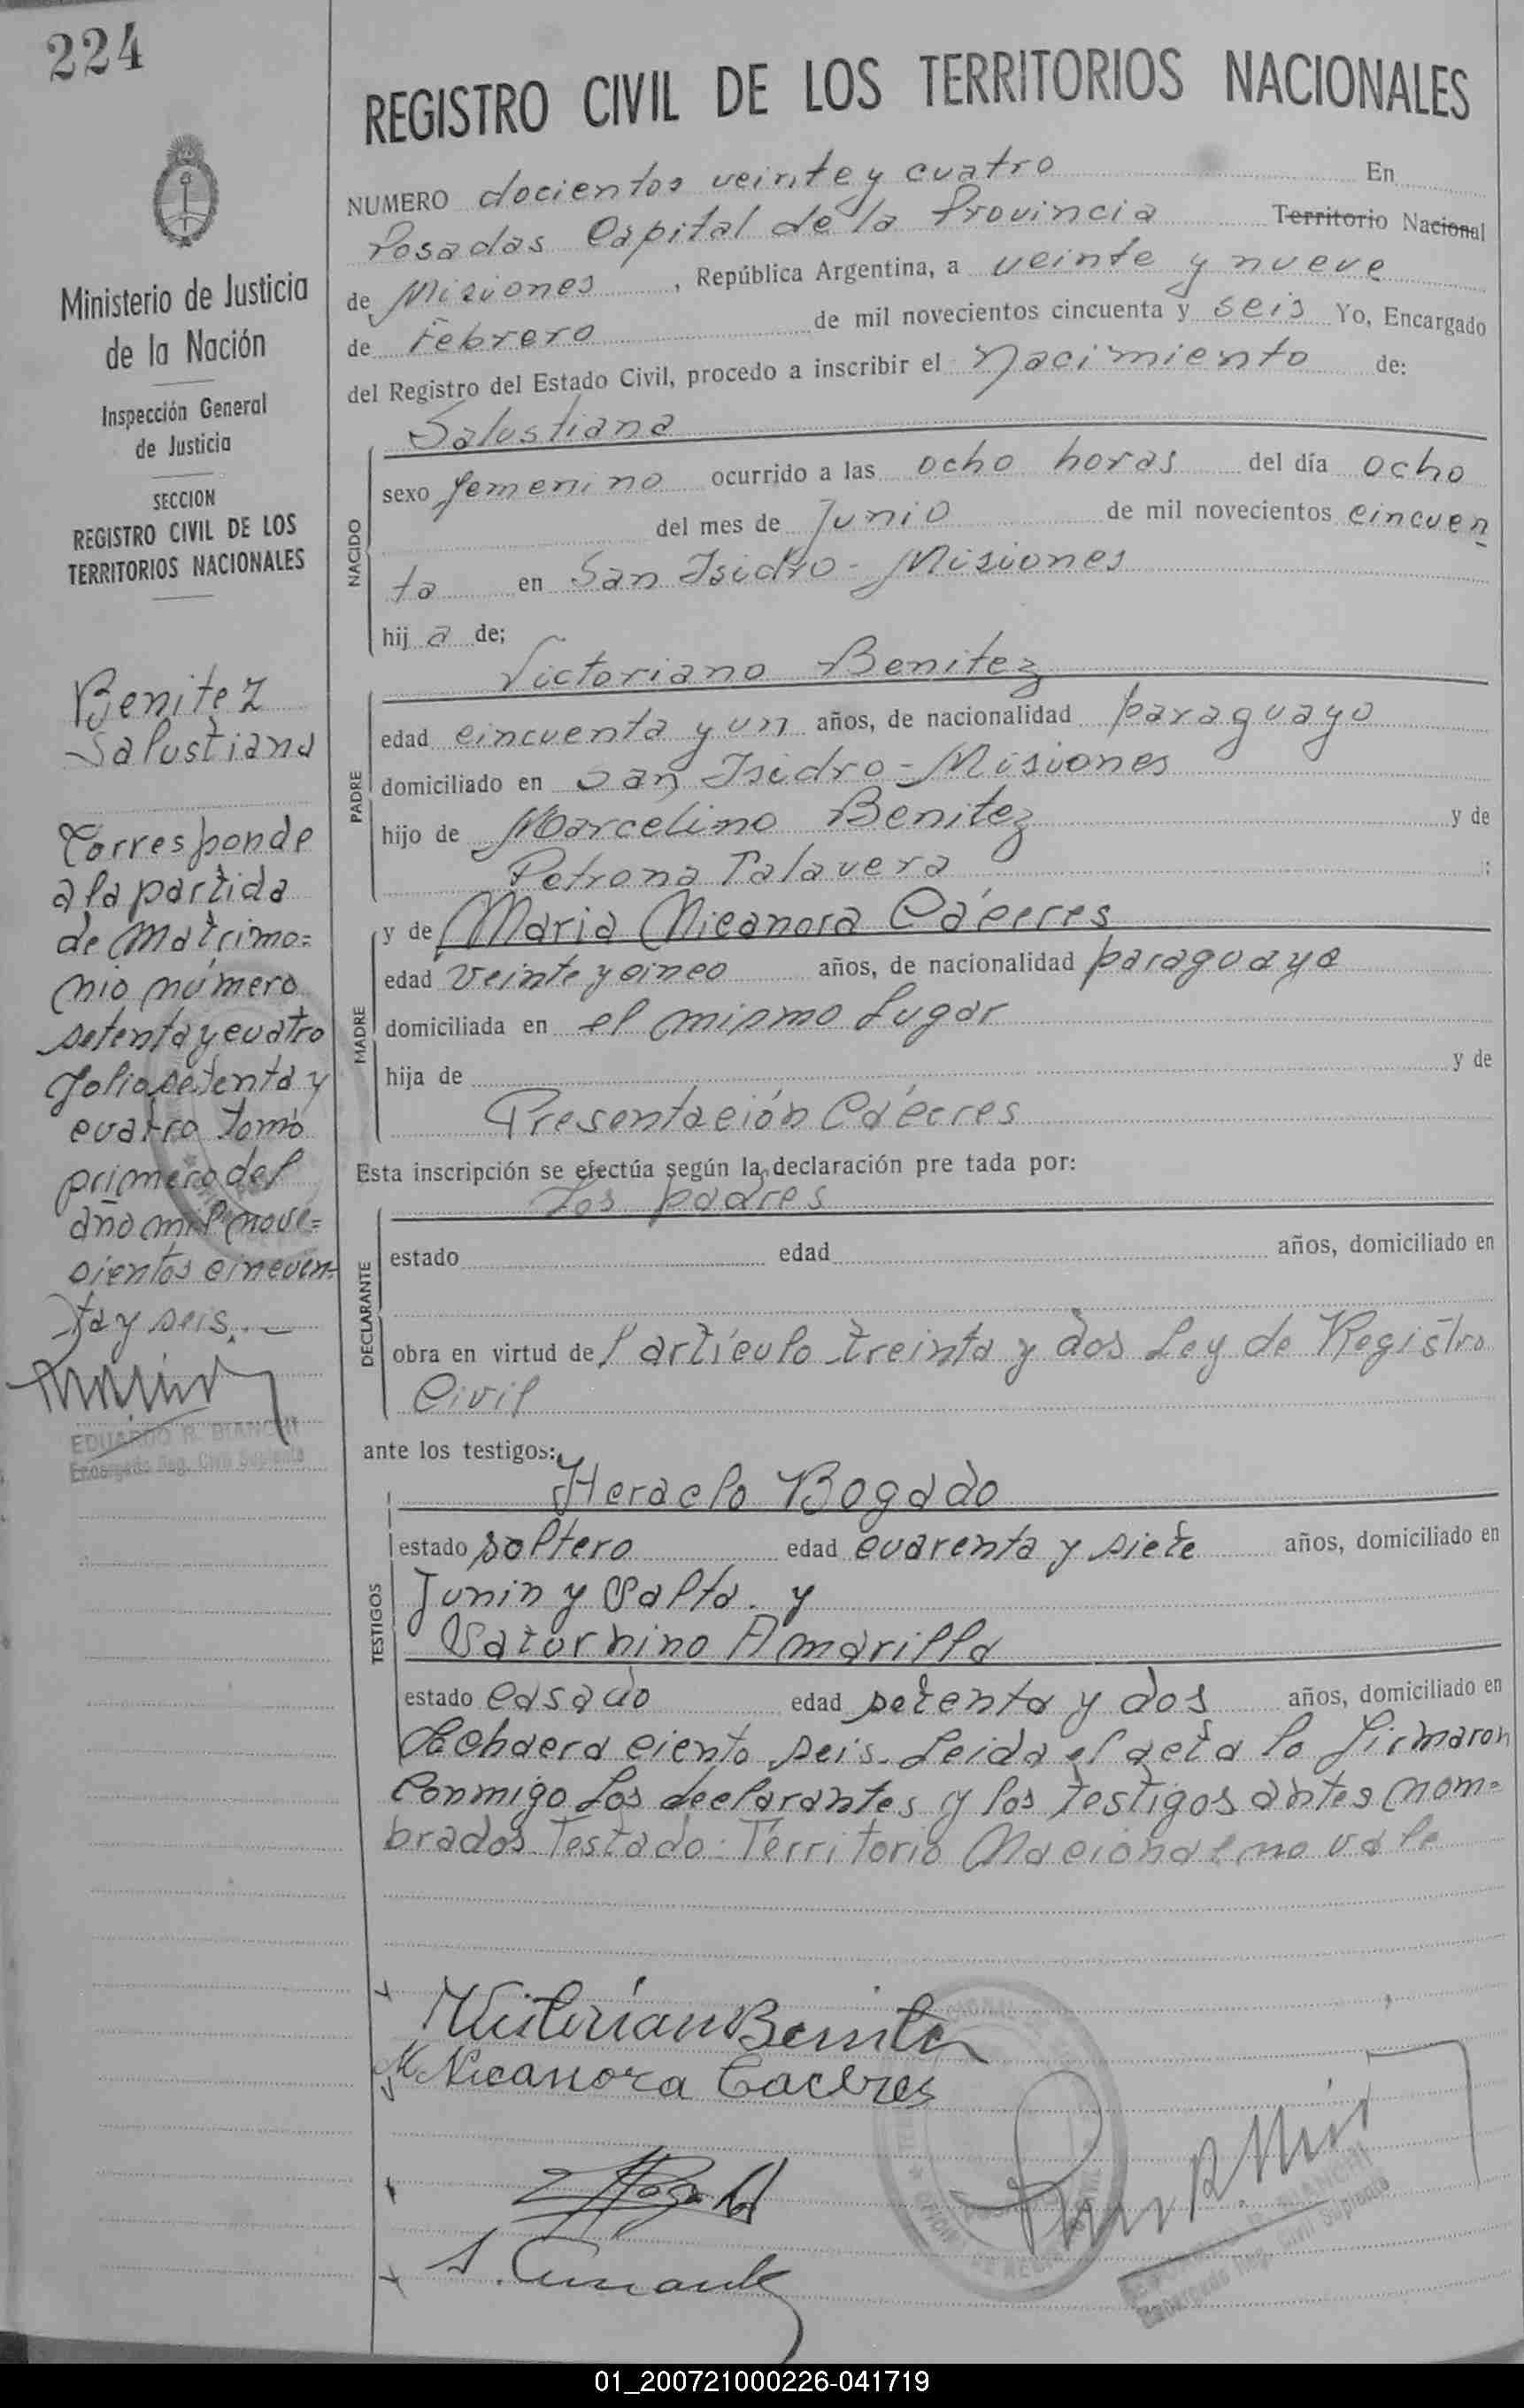 224
Ministerio de Justicia
de la Nación
Inspección General
de Justicia
SECCION
REGISTRO CIVIL DE LOS
TERRITORIOS NACIONALES
Benitez
Salustiana
Corresponde
a la partida
de Matrimo=
nio número
setenta y cuatro
folio setenta y
cuatro tomo
primero del
año mil nove=
cientos cincuen=
ta y seis.—
EDUARDO R. BIANCHI
Encargado Reg. Civil Suplente
REGISTRO CIVIL DE LOS TERRITORIOS NACIONALES
NUMERO docientos veinte y cuatro En
Posadas Capital de la Provincia Territorio Nacional
de Misiones, República Argentina, a veinte y nueve
de Febrero de mil novecientos cincuenta y seis Yo, Encargado
del Registro del Estado Civil, procedo a inscribir el Nacimiento de:
NACIDO
Salustiana
sexo femenino ocurrido a las ocho horas del día ocho
del mes de Junio de mil novecientos cincuen
ta en San Isidro - Misiones
hij a de;
PADRE
Victoriano Benitez
edad cincuenta y un años, de nacionalidad paraguayo
domiciliado en San Isidro - Misiones
hijo de Marcelino Benitez y de
Petrona Talavera ;
MADRE
y de Maria Nicanora Cáceres
edad veinte y cinco años, de nacionalidad paraguaya
domiciliada en el mismo lugar
hija de y de
Presentación Cáceres
Esta inscripción se efectúa según la declaración pre tada por:
DECLARANTE
Los padres
estado edad años, domiciliado en
obra en virtud del artículo treinta y dos Ley de Registro
Civil
ante los testigos:
TESTIGOS
Heraclo Bogado
estado soltero edad cuarenta y siete años, domiciliado en
Junin y Salta. y
Saturnino Amarilla
estado casado edad setenta y dos años, domiciliado en
ciento seis. Leida el acta la firmaron
conmigo los declarantes y los testigos antes nom=
brados Testado: Territorio Nacional no vale
Benitez
M. Nicanora Caceres
01_200721000226-041719